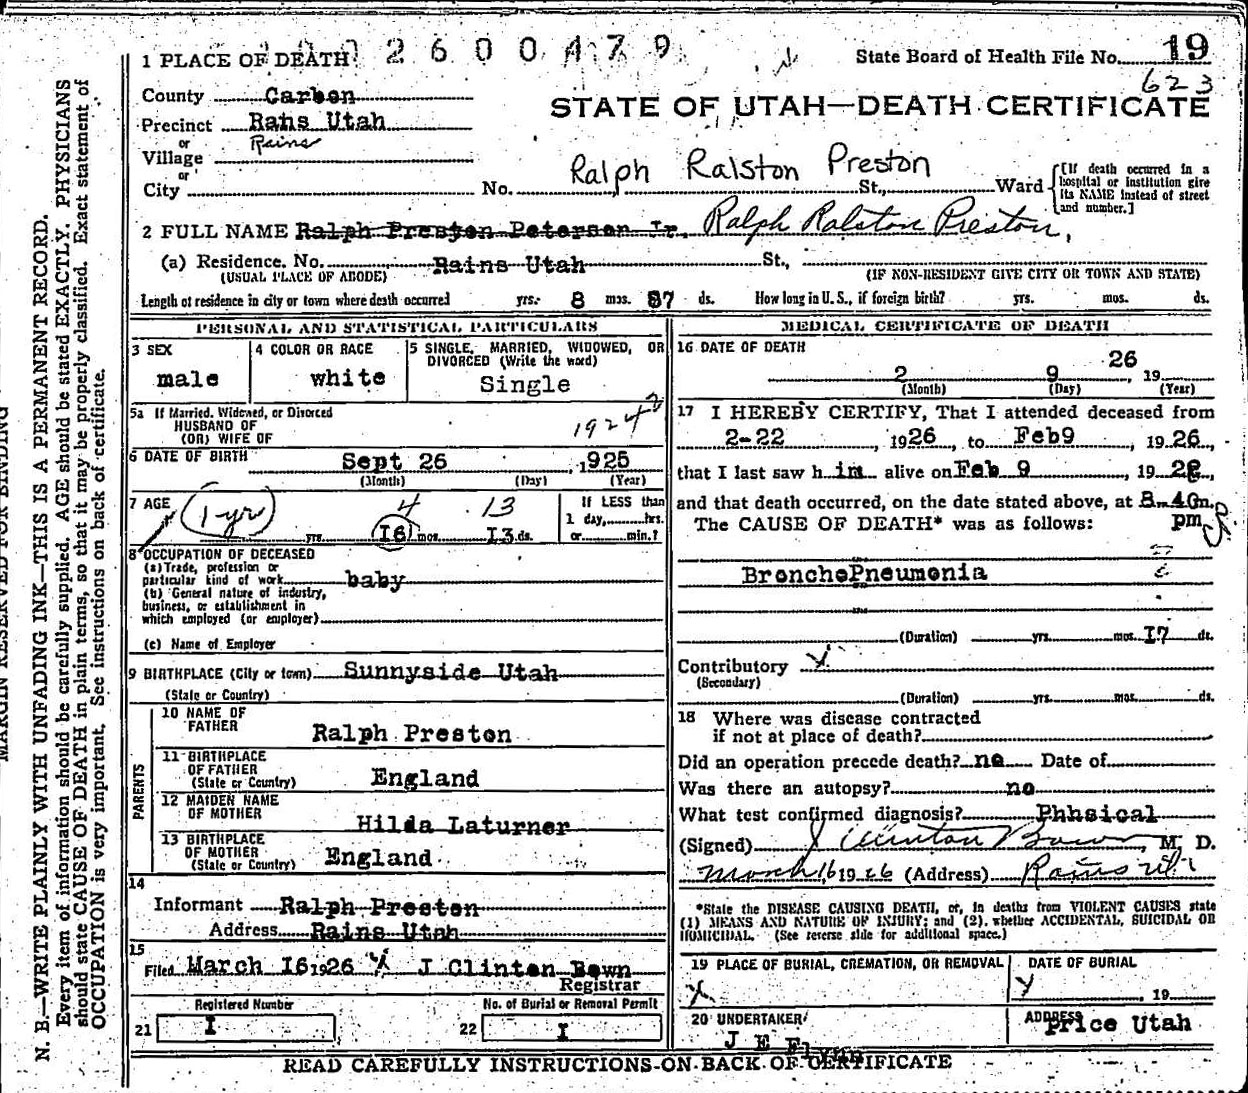 2600479
1 PLACE OF DEATH
State Board of Health File No. 19
623
County Carbon
STATE OF UTAH—DEATH CERTIFICATE
Precinct Rahs Utah
or
Rains
Village
or
City
No.
Ralph Ralston Preston
St., Ward
[If death occurred in a hospital or institution give its NAME instead of street and number.]
2 FULL NAME Ralph Preston Peterson Jr. Ralph Ralston Preston,
(a) Residence. No. Rains Utah St.,
(USUAL PLACE OF ABODE) (IF NON-RESIDENT GIVE CITY OR TOWN AND STATE)
Length of residence in city or town where death occurred yrs. 8 mos. 87 ds. How long in U. S., if foreign birth? yrs. mos. ds.
PERSONAL AND STATISTICAL PARTICULARS
3 SEX
male
4 COLOR OR RACE
white
5 SINGLE, MARRIED, WIDOWED, OR DIVORCED (Write the word)
Single
5a If Married, Widowed, or Divorced
HUSBAND OF
(OR) WIFE OF
1924
6 DATE OF BIRTH Sept 26 , 1925
(Month) (Day) (Year)
7 AGE
(1 yr) 4 13
yrs. 16 mos. 13 ds.
If LESS than
1 day, hrs.
or min.?
8 OCCUPATION OF DECEASED
(a) Trade, profession or
particular kind of work baby
(b) General nature of industry,
business, or establishment in
which employed (or employer)
(c) Name of Employer
9 BIRTHPLACE (City or town) Sunnyside Utah
(State or Country)
PARENTS
10 NAME OF
FATHER
Ralph Preston
11 BIRTHPLACE
OF FATHER
(State or Country)
England
12 MAIDEN NAME
OF MOTHER
Hilda Laturner
13 BIRTHPLACE
OF MOTHER
(State or Country)
England
14
Informant Ralph Preston
Address Rains Utah
15
Filed March 16 1926 J Clinton Bown
Registrar
Registered Number
21 I
No. of Burial or Removal Permit
22 I
MEDICAL CERTIFICATE OF DEATH
16 DATE OF DEATH
2 9 26 , 19
(Month) (Day) (Year)
17 I HEREBY CERTIFY, That I attended deceased from
2-22 , 1926, to Feb9 , 1926,
that I last saw him alive on Feb 9 1926,
and that death occurred, on the date stated above, at 8-40m.
The CAUSE OF DEATH* was as follows: pm
BronchoPneumonia
(Duration) yrs. mos. I7 ds.
Contributory
(Secondary)
(Duration) yrs. mos. ds.
18 Where was disease contracted
if not at place of death?
Did an operation precede death? no Date of
Was there an autopsy? no
What test confirmed diagnosis? Phhsical
(Signed) J Clinton Bown, M. D.
March 16 1926 (Address) Rains Ut
*State the DISEASE CAUSING DEATH, or, in deaths from VIOLENT CAUSES state
(1) MEANS AND NATURE OF INJURY; and (2), whether ACCIDENTAL, SUICIDAL OR
HOMICIDAL. (See reverse side for additional space.)
19 PLACE OF BURIAL, CREMATION, OR REMOVAL
DATE OF BURIAL
, 19
20 UNDERTAKER
J E Flynn
ADDRESS
Price Utah
READ CAREFULLY INSTRUCTIONS ON BACK OF CERTIFICATE
MARGIN RESERVED FOR BINDING
N. B.—WRITE PLAINLY WITH UNFADING INK—THIS IS A PERMANENT RECORD.
Every item of information should be carefully supplied. AGE should be stated EXACTLY. PHYSICIANS
should state CAUSE OF DEATH in plain terms, so that it may be properly classified. Exact statement of
OCCUPATION is very important. See instructions on back of certificate.